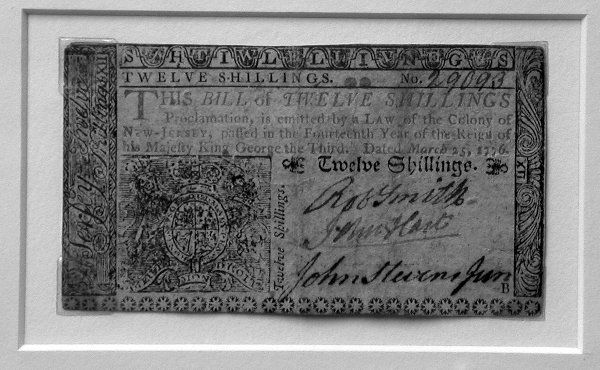 SHILLINGS
TWELVE SHILLINGS. No. 29093
THIS BILL of TWELVE SHILLINGS
Proclamation, is emitted by a LAW of the Colony of
NEW-JERSEY, passed in the Fourteenth Year of the Reign of
his Majesty King George the Third. Dated March 25, 1776.
Twelve Shillings.
XII
Twelve Shillings.
Robt Smith
John Hart
John Stevens Junr
B